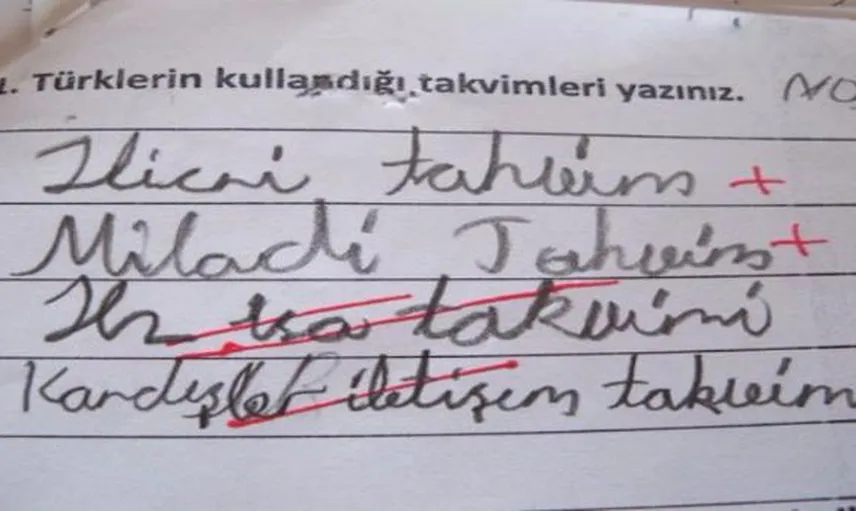 1. Türklerin kullandığı takvimleri yazınız. NO
Hicri takvim +
Miladi Takvim +
Hz isa takvimi
Kardeşler iletişim takvim